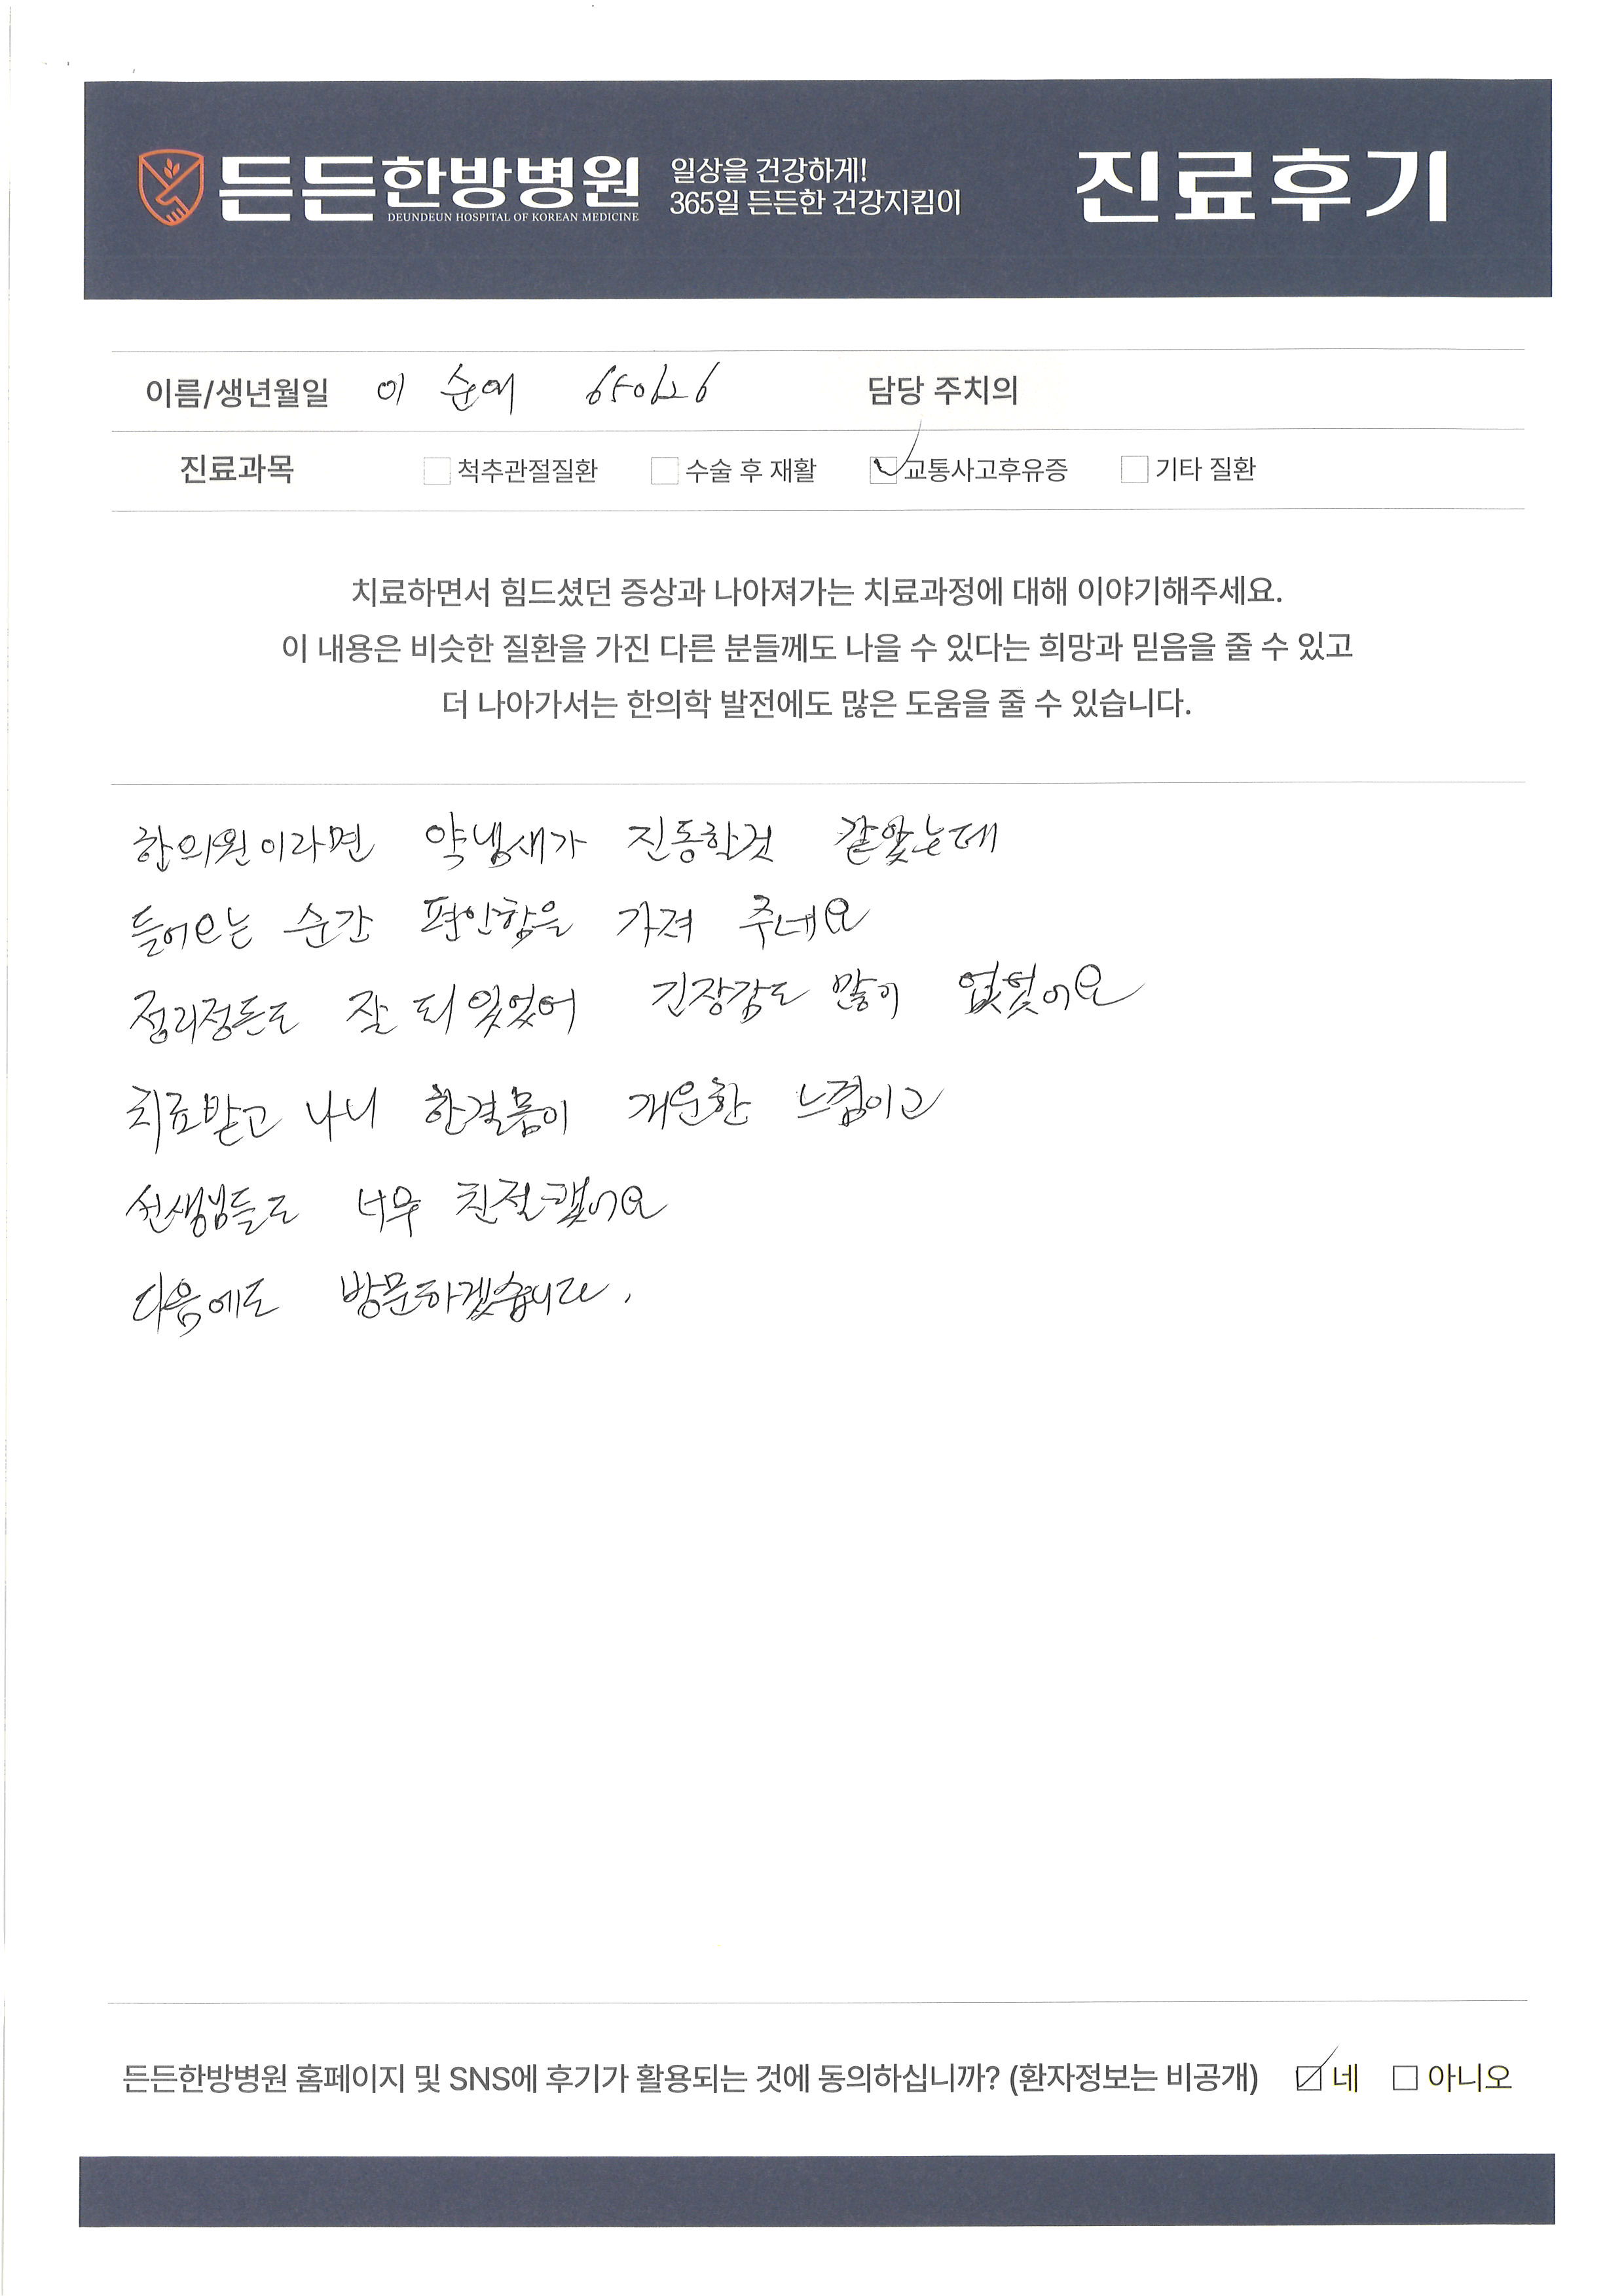 든든한방병원
DEUNDEUN HOSPITAL OF KOREAN MEDICINE
일상을 건강하게!
365일 든든한 건강지킴이
진료후기
이름/생년월일 이 순여 650626 담당 주치의
진료과목 척추관절질환 수술 후 재활 교통사고후유증 기타 질환
치료하면서 힘드셨던 증상과 나아져가는 치료과정에 대해 이야기해주세요.
이 내용은 비슷한 질환을 가진 다른 분들께도 나을 수 있다는 희망과 믿음을 줄 수 있고
더 나아가서는 한의학 발전에도 많은 도움을 줄 수 있습니다.
한의원이라면 약냄새가 진동할것 같았는데
들어오는 순간 편안함을 가져 주네요
정리정돈도 잘 되 있었어 긴장감도 많이 없었어요
치료받고 나니 한결몸이 개운한 느낌이고
선생님들도 너무 친절했어요
다음에도 방문하겠습니다.
든든한방병원 홈페이지 및 SNS에 후기가 활용되는 것에 동의하십니까? (환자정보는 비공개) 네 아니오